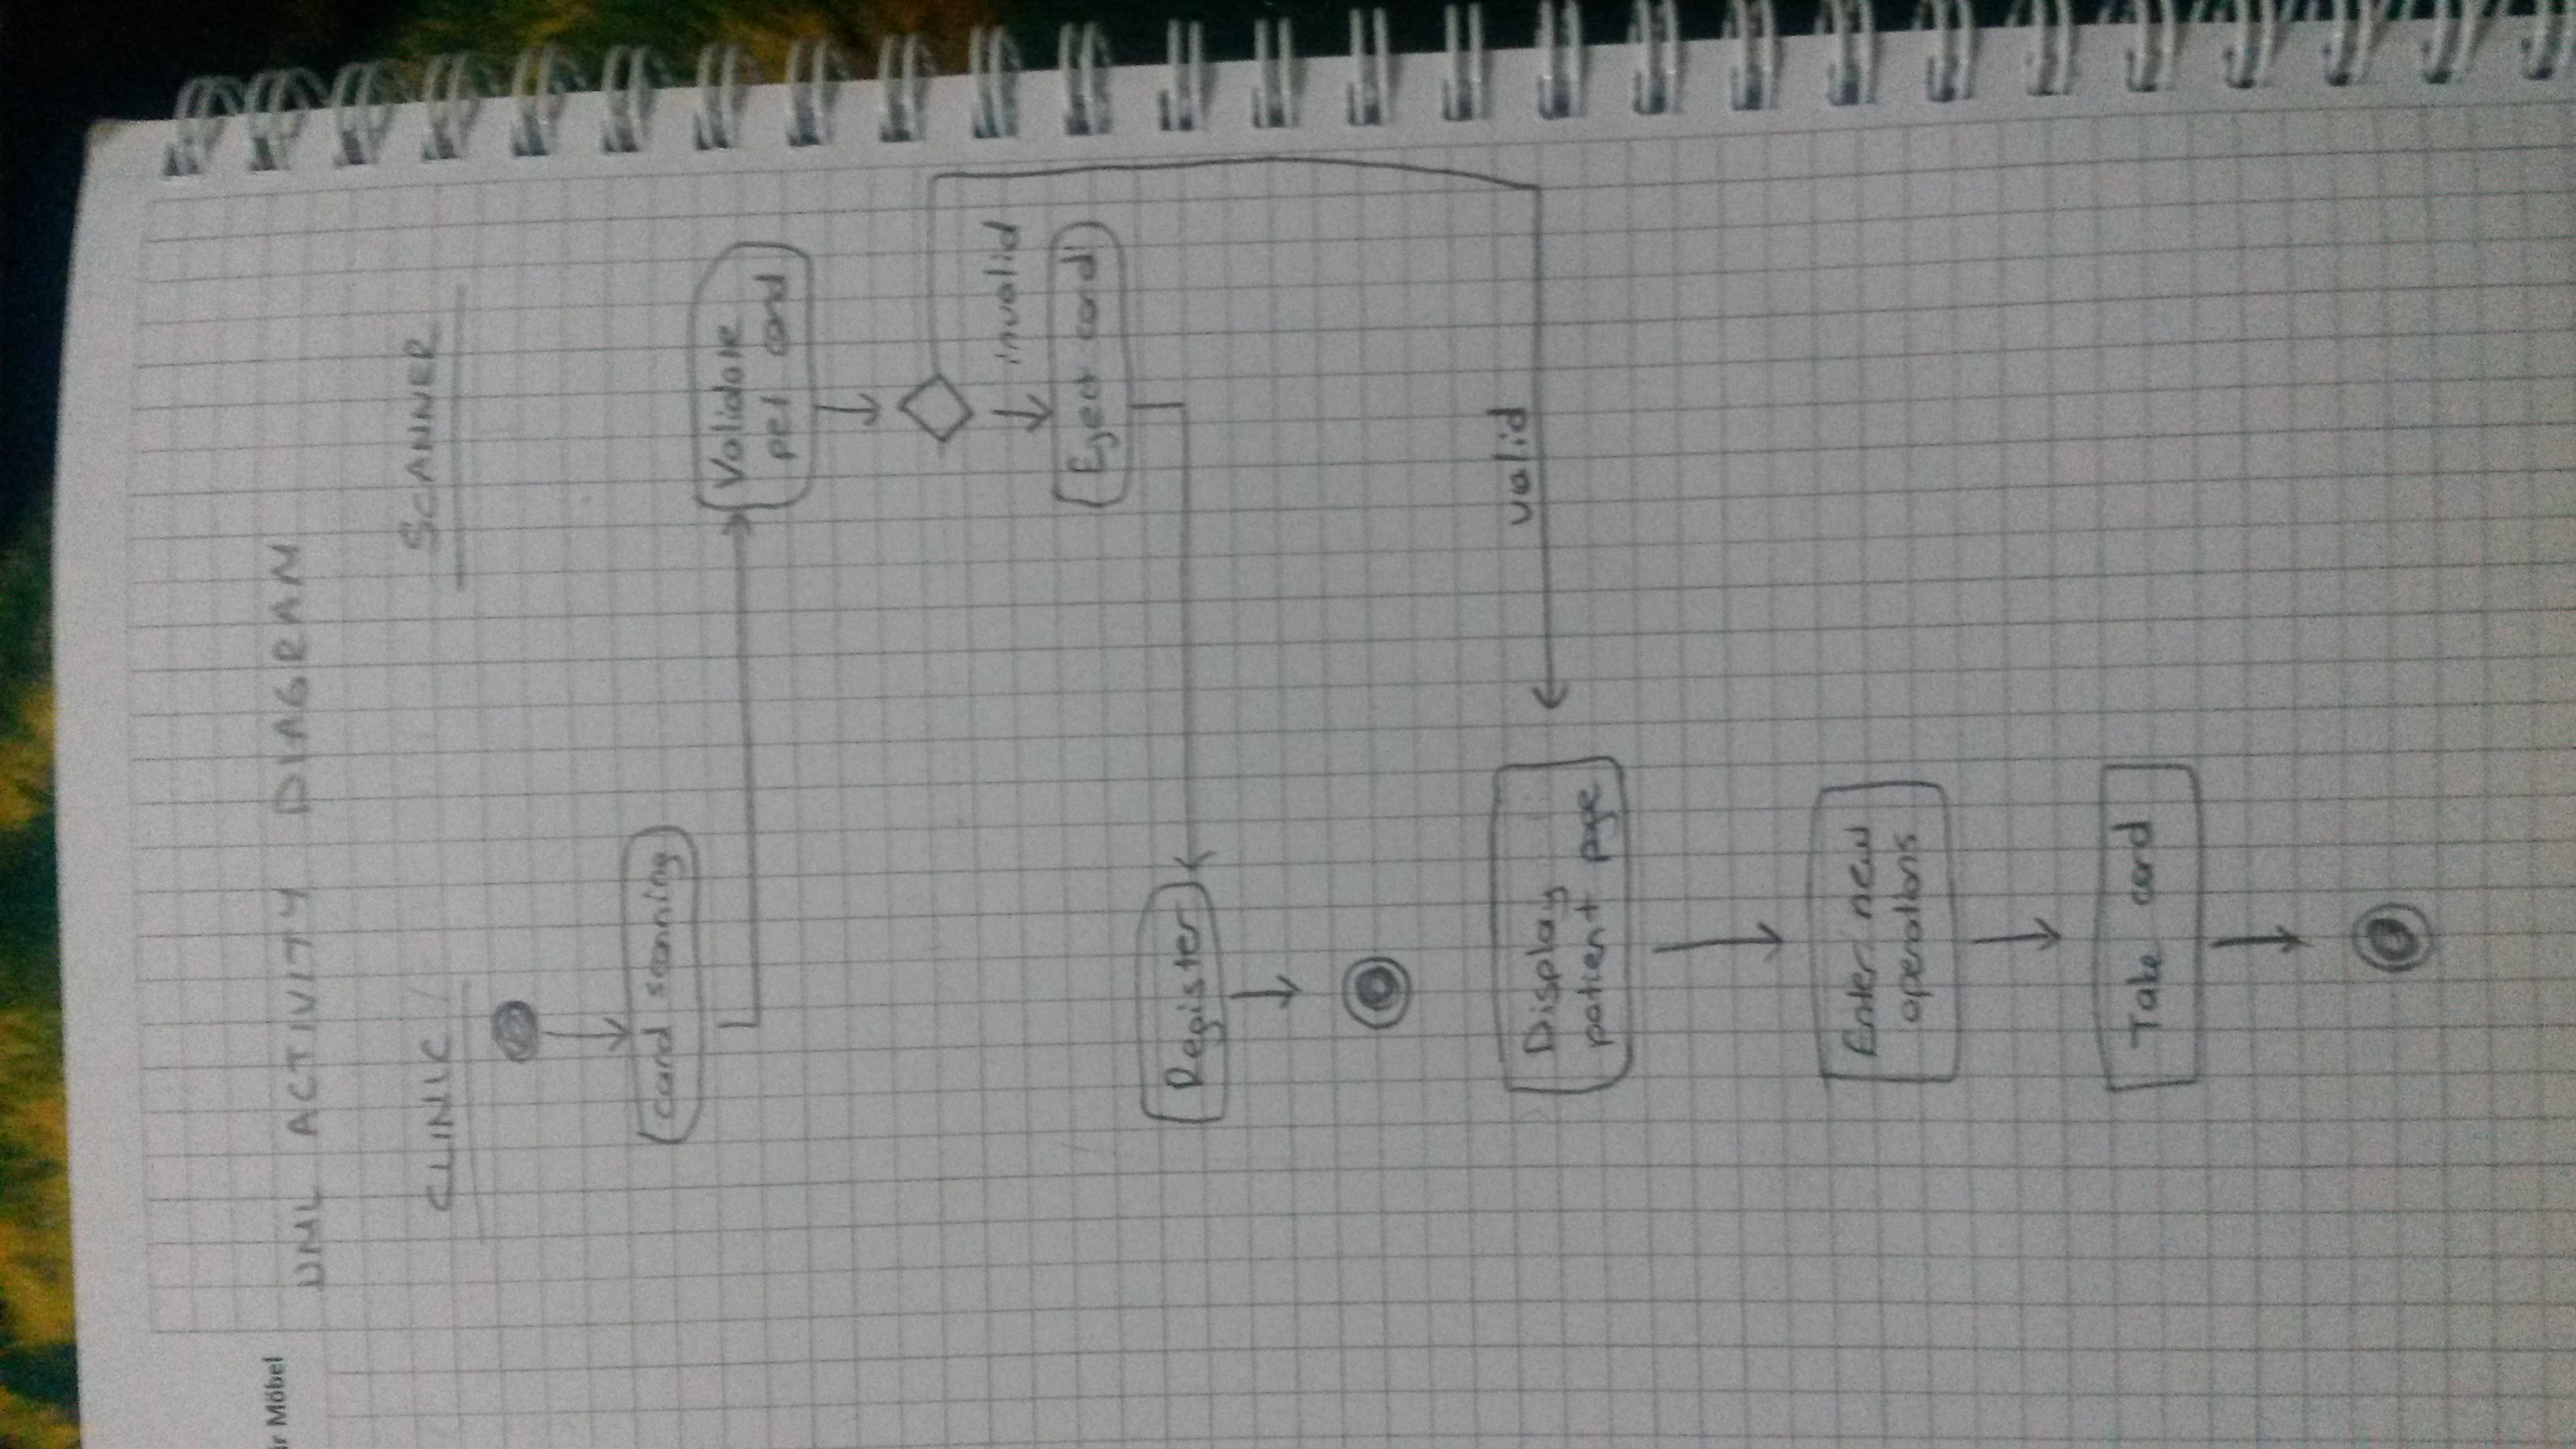 ir Möbel
UML ACTIVITY DIAGRAM
CLINIC
SCANNER
card scanning
Validate
pet card
invalid
Eject card
Register
valid
Display
patient page
Enter new
operations
Take card